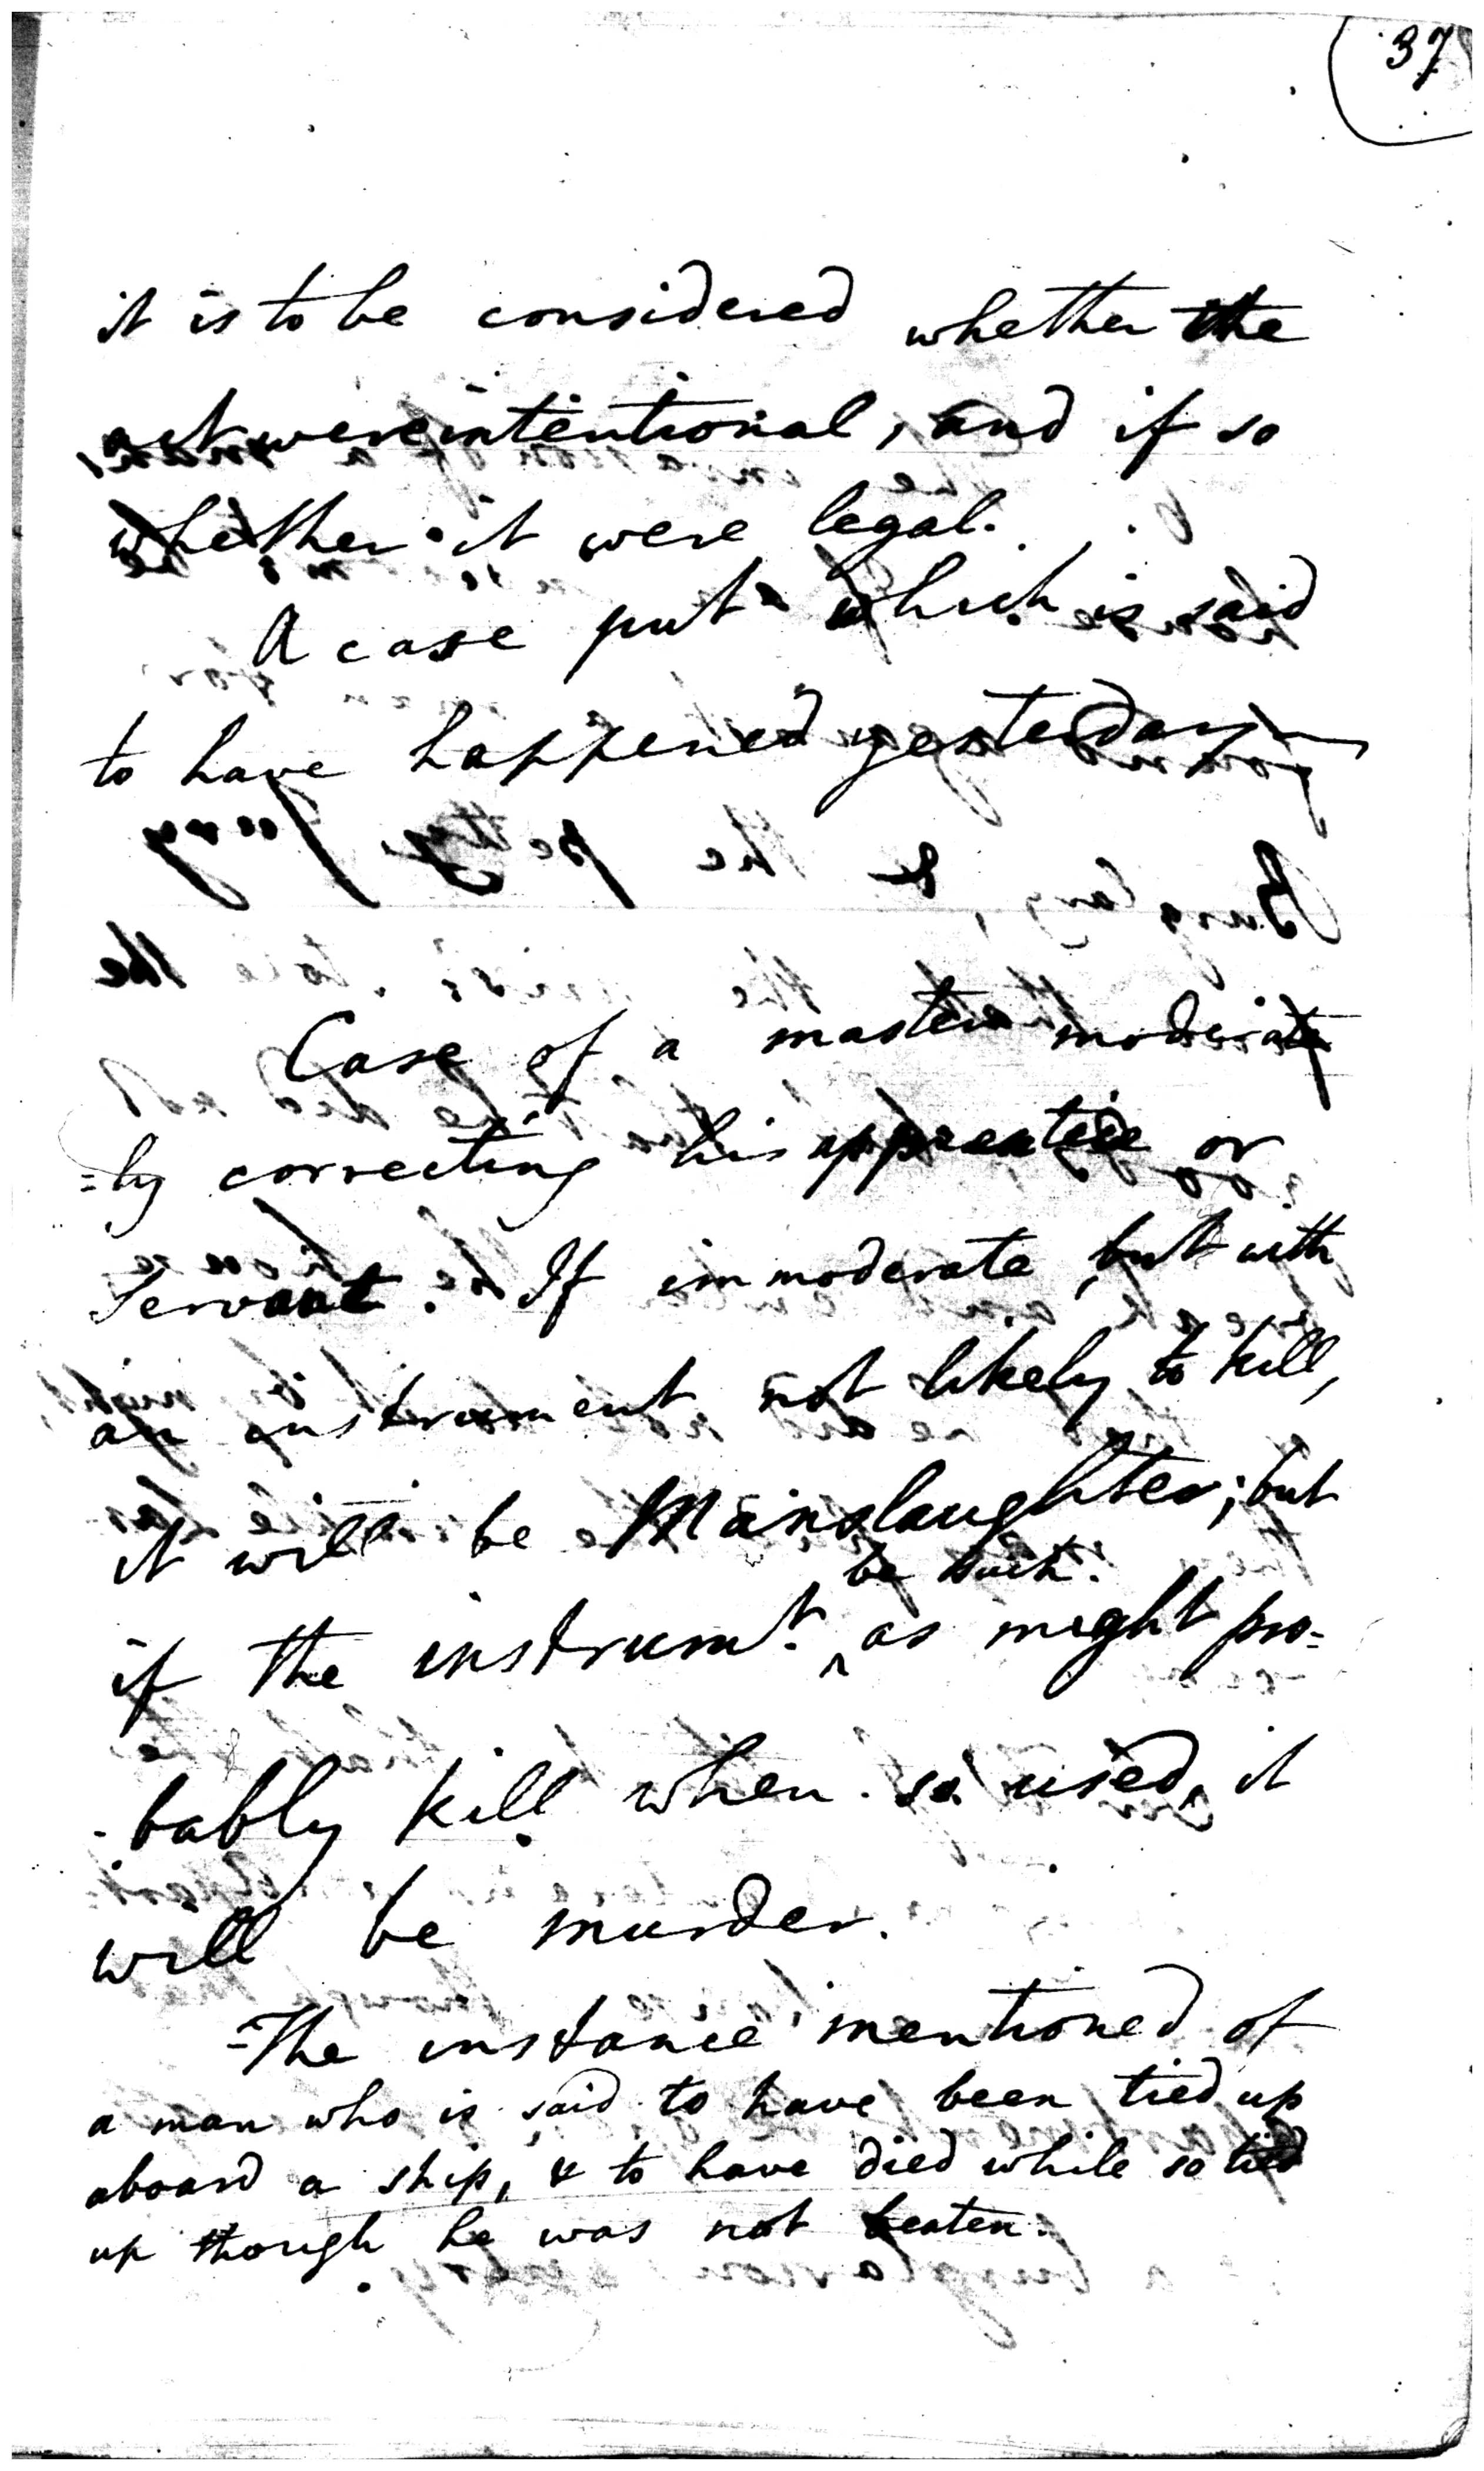 37
it is to be considered whether the
act were intentional, and if so
whether it were legal.
A case put which is said
to have happened yesterday
Case of a master moderate
=ly correcting his apprentice or
Servant. If immoderate, but with
an instrument not likely to kill,
it will be Manslaughter; but
be such
if the instrumt. ^ as might pro-
-bably kill when so used, it
will be murder.
The instance mentioned of
a man who is said to have been tied up
aboard a ship, & to have died while so tied
up though he was not beaten.